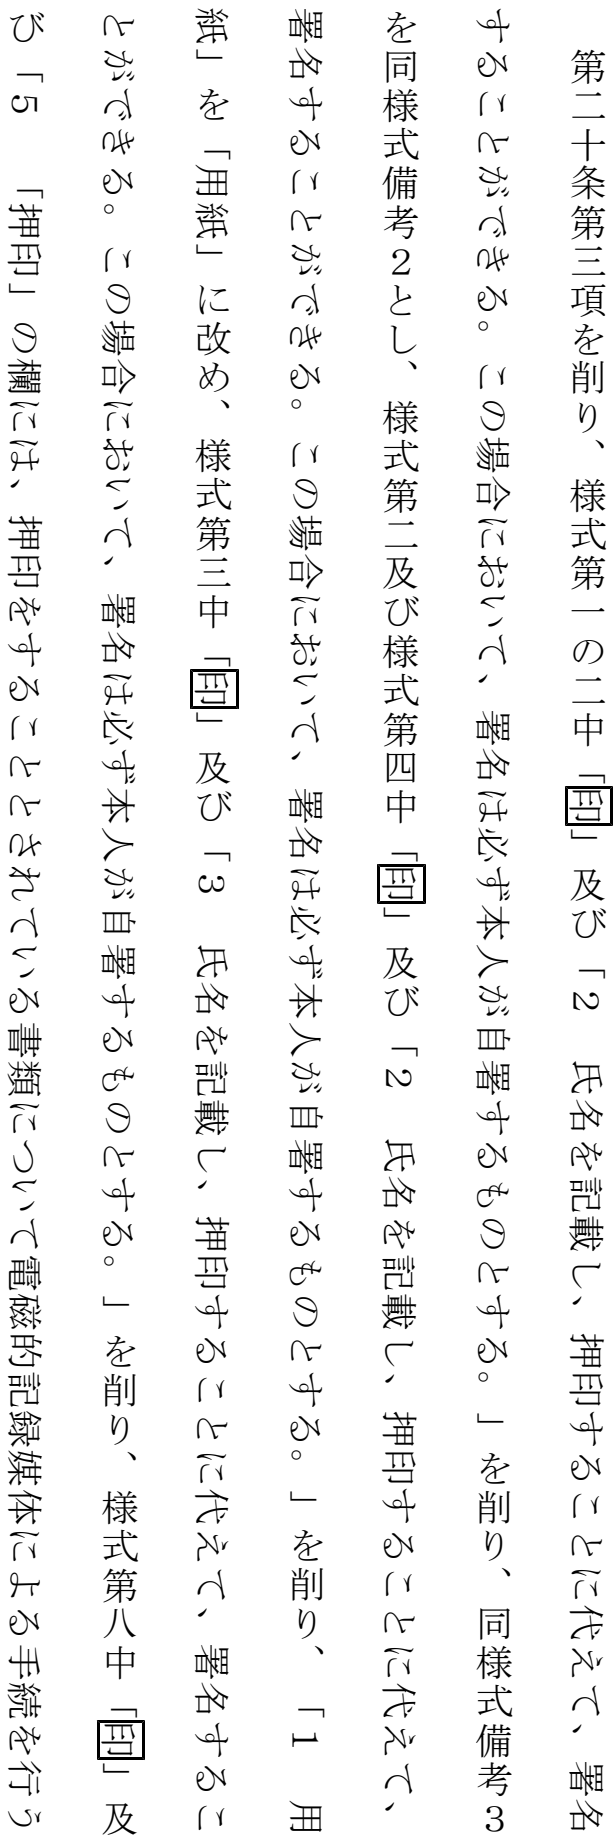 第二十条第三項を削り、様式第一の二中「印」及び「２　氏名を記載し、押印することに代えて、署名
することができる。この場合において、署名は必ず本人が自署するものとする。」を削り、同様式備考３
を同様式備考２とし、様式第二及び様式第四中「印」及び「２　氏名を記載し、押印することに代えて、
署名することができる。この場合において、署名は必ず本人が自署するものとする。」を削り、「１　用
紙」を「用紙」に改め、様式第三中「印」及び「３　氏名を記載し、押印することに代えて、署名するこ
とができる。この場合において、署名は必ず本人が自署するものとする。」を削り、様式第八中「印」及
び「５　「押印」の欄には、押印をすることとされている書類について電磁的記録媒体による手続を行う